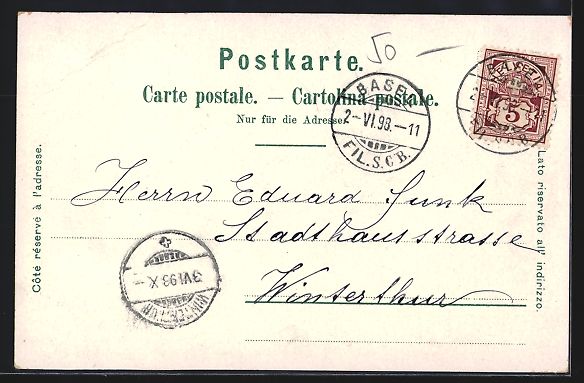 50 —
Postkarte.
Carte postale. — Cartolina postale.
Nur für die Adresse.
Côté réservé à l'adresse.
Lato riservato all' indirizzo.
BASEL
2–VI.98.–11
FIL. S.C.B.
5
Herrn Eduard Junk
Stadthausstrasse
Winterthur
3 VI 98 X –
WINTERTHUR